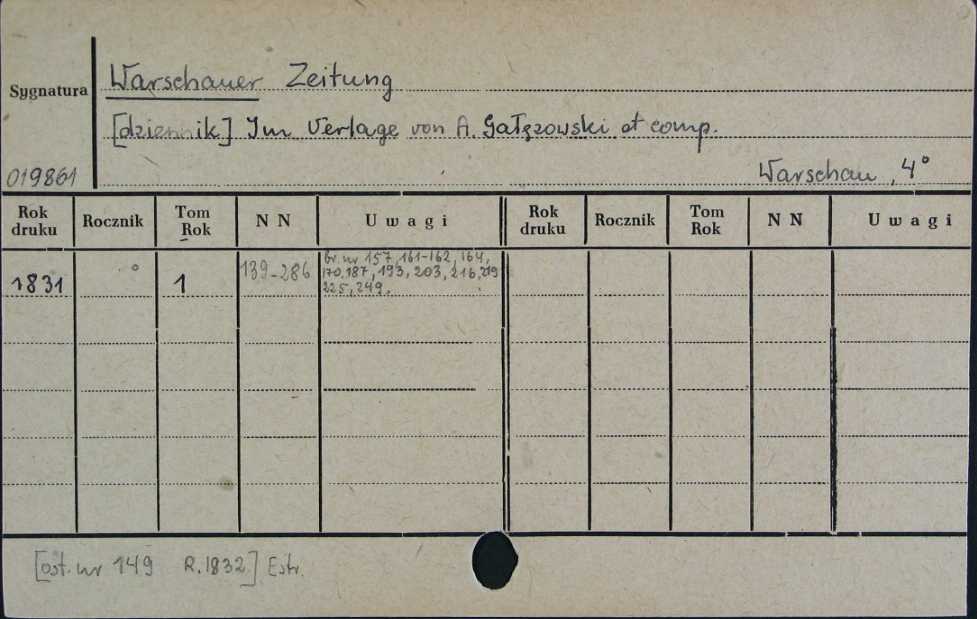 Sygnatura
Warschauer Zeitung
[dziennik] Im Verlage von A. Gałęzowski et comp.
019861
Warschau, 4°
Rok druku Rocznik Tom Rok N N Uwagi Rok druku Rocznik Tom Rok N N Uwagi
1831 1 139-286 br. nr 157, 161-162, 164,
170, 187, 193, 203, 216, 219
225, 249.
[ost. nr 149 R. 1832.] Estr.